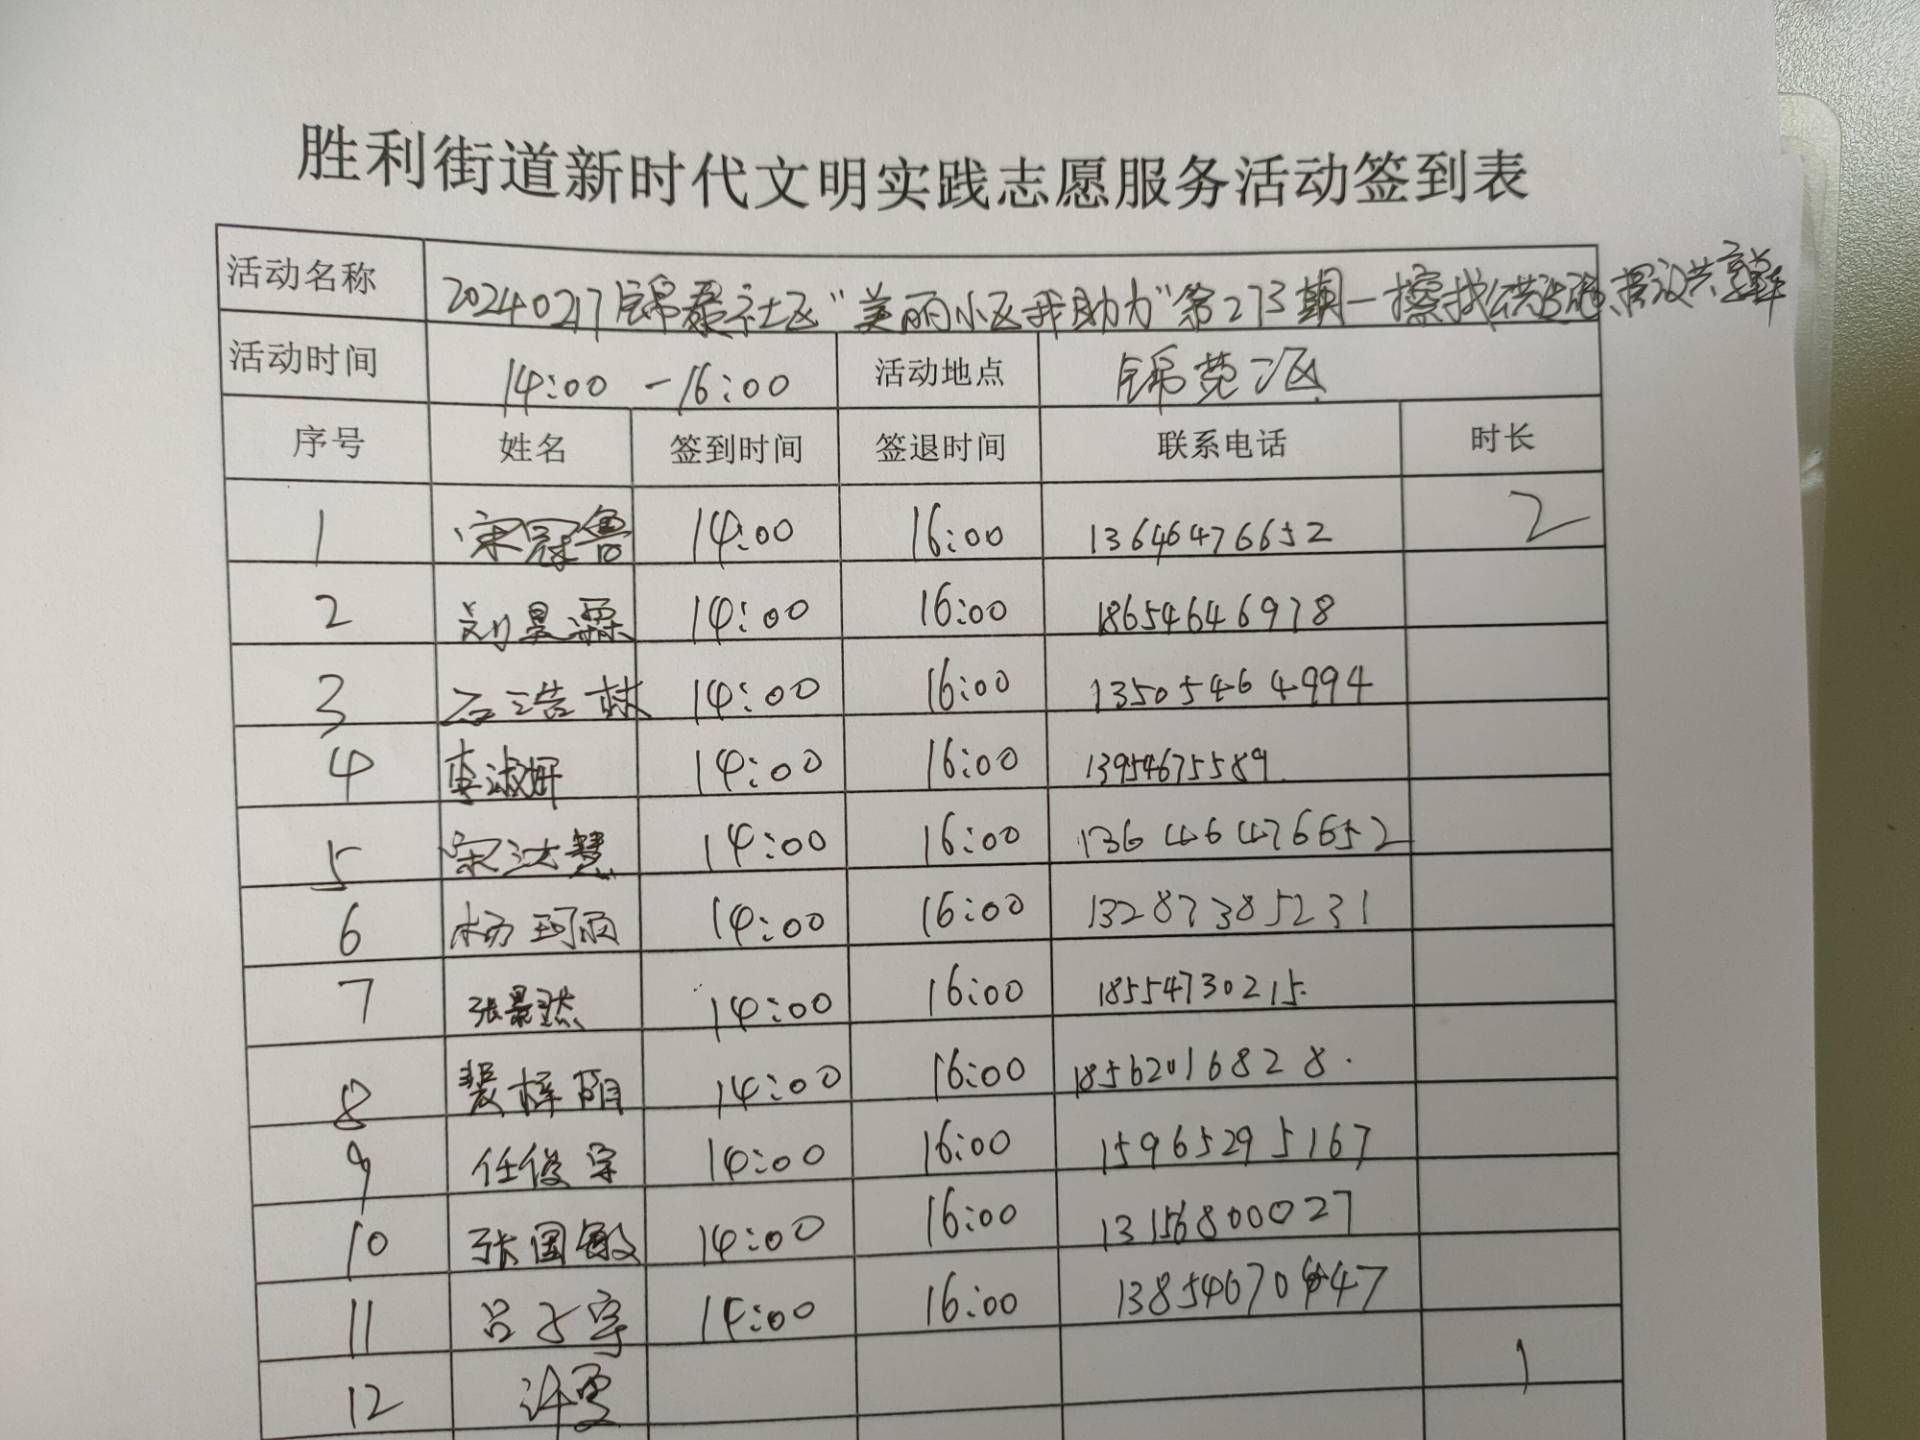 胜利街道新时代文明实践志愿服务活动签到表
活动名称 20240217锦泰社区“美丽小区我助力”第273期—擦拭公共设施、摆放共享单车
活动时间 14:00-16:00 活动地点 锦苑二区
序号 姓名 签到时间 签退时间 联系电话 时长
1 宋冠鲁 14:00 16:00 13646476652 2
2 刘昊霖 14:00 16:00 18654646978
3 石浩林 14:00 16:00 13505464994
4 李淑妍 14:00 16:00 13954675589
5 宋达慧 14:00 16:00 13646476652
6 杨珂雨 14:00 16:00 13287385231
7 张景然 14:00 16:00 18554730215
8 裴梓阴 14:00 16:00 18562016828
9 任俊宇 14:00 16:00 15965295167
10 张国敏 14:00 16:00 13156800027
11 吕子宇 14:00 16:00 13854670447
12 许雯 1